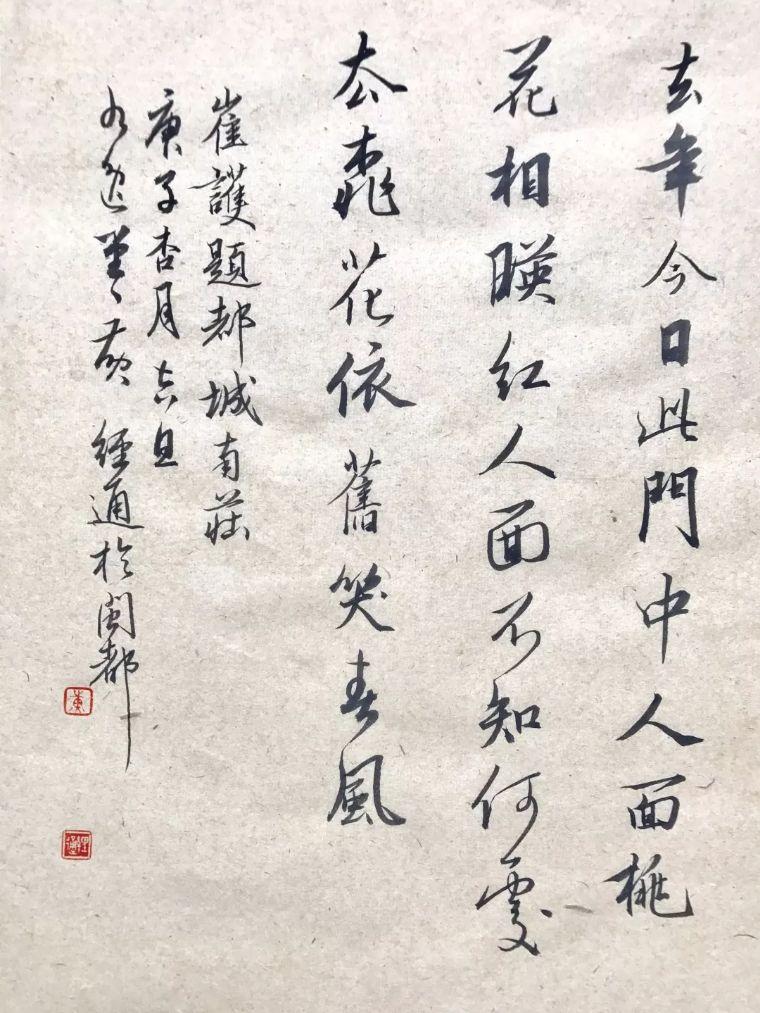 去年今日此門中人面桃
花相暎红人面不知何處
厺桃花依舊笑春風
崔護題都城南莊
庚子杏月吉旦
黄經通於閩都
黄